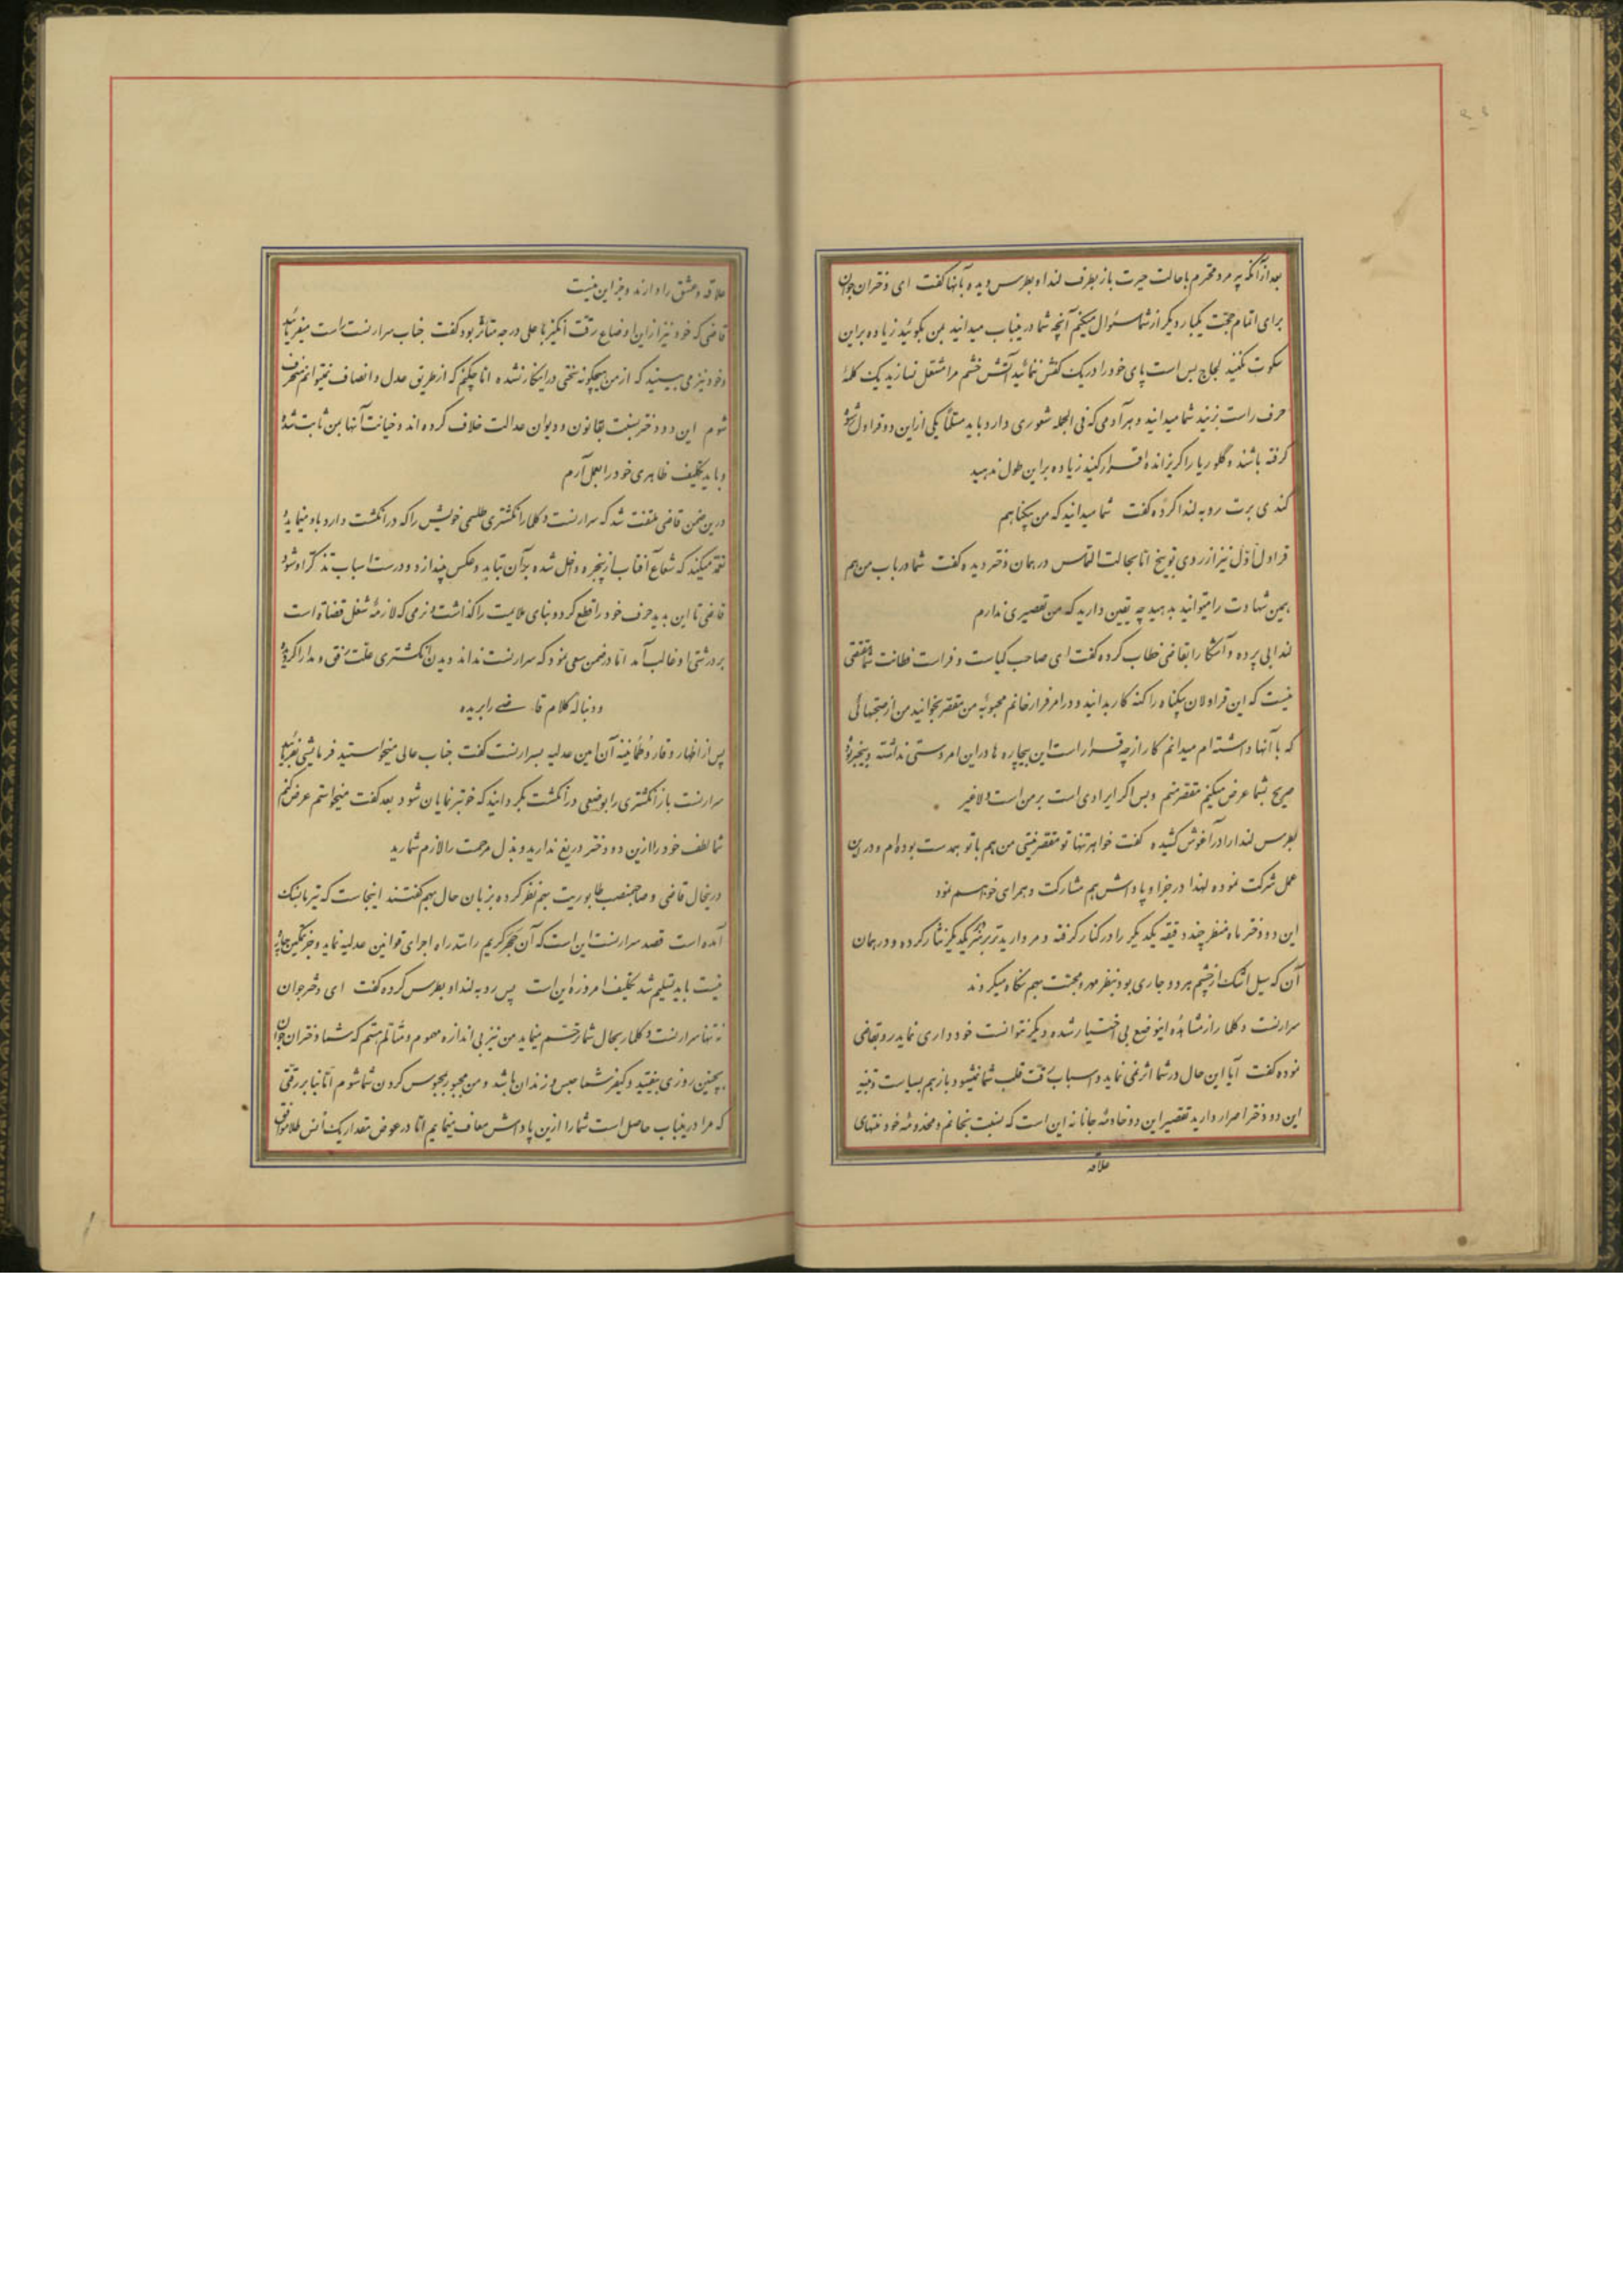 بعد از آنکه پیرمرد محترم با حالت حیرت باز بطرف لندا و بطرس دیده بآنها گفت ای دختران جوان
برای اتمام حجت یکبار دیگر از شما سئوال میکنم آنچه شما در اینباب میدانید بمن بگوئید زیاده براین
سکوت نکنید لجاج بس است پای خود را در یک کفش ننمائید آتش خشم مرا مشتعل نسازید یک کلمهٔ
حرف راست بزنید شما میدانید و هر آدمی که فی الجمله شعوری دارد باید مسئلهٔ یکی از این دو قراول رشوه
گرفته باشند و گلوریا را گریزانده اقرار کنید زیاده براین طول ندهید
کندی برت رو به لندا کرده گفت شما میدانید که من بیگناهم
قراول اول نیز از روی توبیخ اما بحالت التماس در همان دختر دیده گفت شما در باب من هم
بمین شهادت را میتوانید بدهید چه یقین دارید که من تقصیری ندارم
لندا بی پرده و آشکارا بقاضی خطاب کرده گفت ای صاحب کیاست و فراست فطانت شما مقتضی
نیست که این قراولان بیگناه را گنه کار بدانید و در امر فرار خانم محبوبهٔ من مقصر بخوانید من از صحبتهائی
که با آنها داشته ام میدانم کار از چه قرار است این بیچاره ها در این امر دستی نداشته و بیخبر بودند
صریح بشما عرض میکنم مقصر منم و بس اگر ایرادی است بر من است ولاغیر
بطرس لندا را در آغوش کشیده گفت خواهر تنها تو مقصر نیستی من هم با تو همدست بوده ام و در این
عمل شرکت نموده لهذا در جزا و پاداش هم مشارکت و همراهی خواهم نمود
این دو دختر ماه منظر چند دقیقه یکدیگر را در کنار گرفته و مروارید تر بر یکدیگر نثار کرده و در همان
آن که سیل اشک از چشم هر دو جاری بود بنظر مهر و محبت بهم نگاه میکردند
سرارنست دکلار از مشاهدهٔ اینوضع بی اختیار شده دیگر نتوانست خودداری نماید رو بقاضی
نموده گفت آیا این حال در شما اثر نمی نماید و اسباب رقت قلب شما نمیشود باز هم بسیاست و تنبیه
این دو دختر اصرار دارید تقصیر این دو خادمهٔ جانانه این است که نسبت بخانم و مخدومهٔ خود منتهای
علاقه
علاقه و عشق را دارند و جز این نیست
قاضی که خود نیز از این اوضاع رقت انگیز باعلی درجه متاثر بود گفت جناب سرارنست راست میفرمائید
و خود نیز می بینید که از من هیچگونه سختی در اینکار نشده اما چکنم که از طریق عدل و انصاف نمیتوانم منحرف
شوم این دو دختر نسبت بقانون و دیوان عدالت خلاف کرده اند و خیانت آنها بمن ثابت شد
و باید تکلیف ظاهری خود را بعمل آرم
در این ضمن قاضی ملتفت شد که سرارنست دکلار انگشتری طلسمی خویش را که در انگشت دارد باو مینماید و
تعمد میکند که شعاع آفتاب از پنجره داخل شده بر آن بتابد و عکس بیندازد و درست اسباب تذکر او شود
قاضی تا این بدید حرف خود را قطع کرد و بنای ملایمت را گذاشت و نرمی که لازمهٔ شغل قضاة است
بر درشتی او غالب آمد اما در ضمن سعی نمود که سرارنست نداند دیدن انگشتری علت رفق و مدارا گردیده
و دنبالهٔ کلام قاضی را بریده
پس از اظهار وقار و طمانینه آن امین عدلیه بسرارنست گفت جناب عالی میخواستید فرمایشی بفرمائید
سرارنست باز انگشتری را بوضعی در انگشت بگردانید که خوبتر نمایان شود بعد گفت میخواستم عرض کنم
شما لطف خود را از این دو دختر دریغ ندارید و بذل مرحمت را لازم شمارید
درینحال قاضی و صاحبمنصب طابوریت بهم نظر کرده بزبان حال بهم گفتند اینجاست که تیر بسنگ
آمده است قصد سرارنست این است که آن حجر کریم را سد راه اجرای قوانین عدلیه نماید و جز تمکین چارهٔ
نیست باید تسلیم شد تکلیف امروزه این است پس رو به لندا و بطرس کرده گفت ای دختر جوان
نه تنها سرارنست دکلار بحال شما ترحم مینماید من نیز بی اندازه مهموم و متالم هستم که شما دختران جوان
بچنین روزی بیفتید و کیفر شما حبس و زندان باشد و من مجبور بمحبوس کردن شما شوم اما بنا بر رقتی
که مرا در اینباب حاصل است شما را از این پاداش معاف مینمایم اما در عوض مقدار یک انس طلا موافق